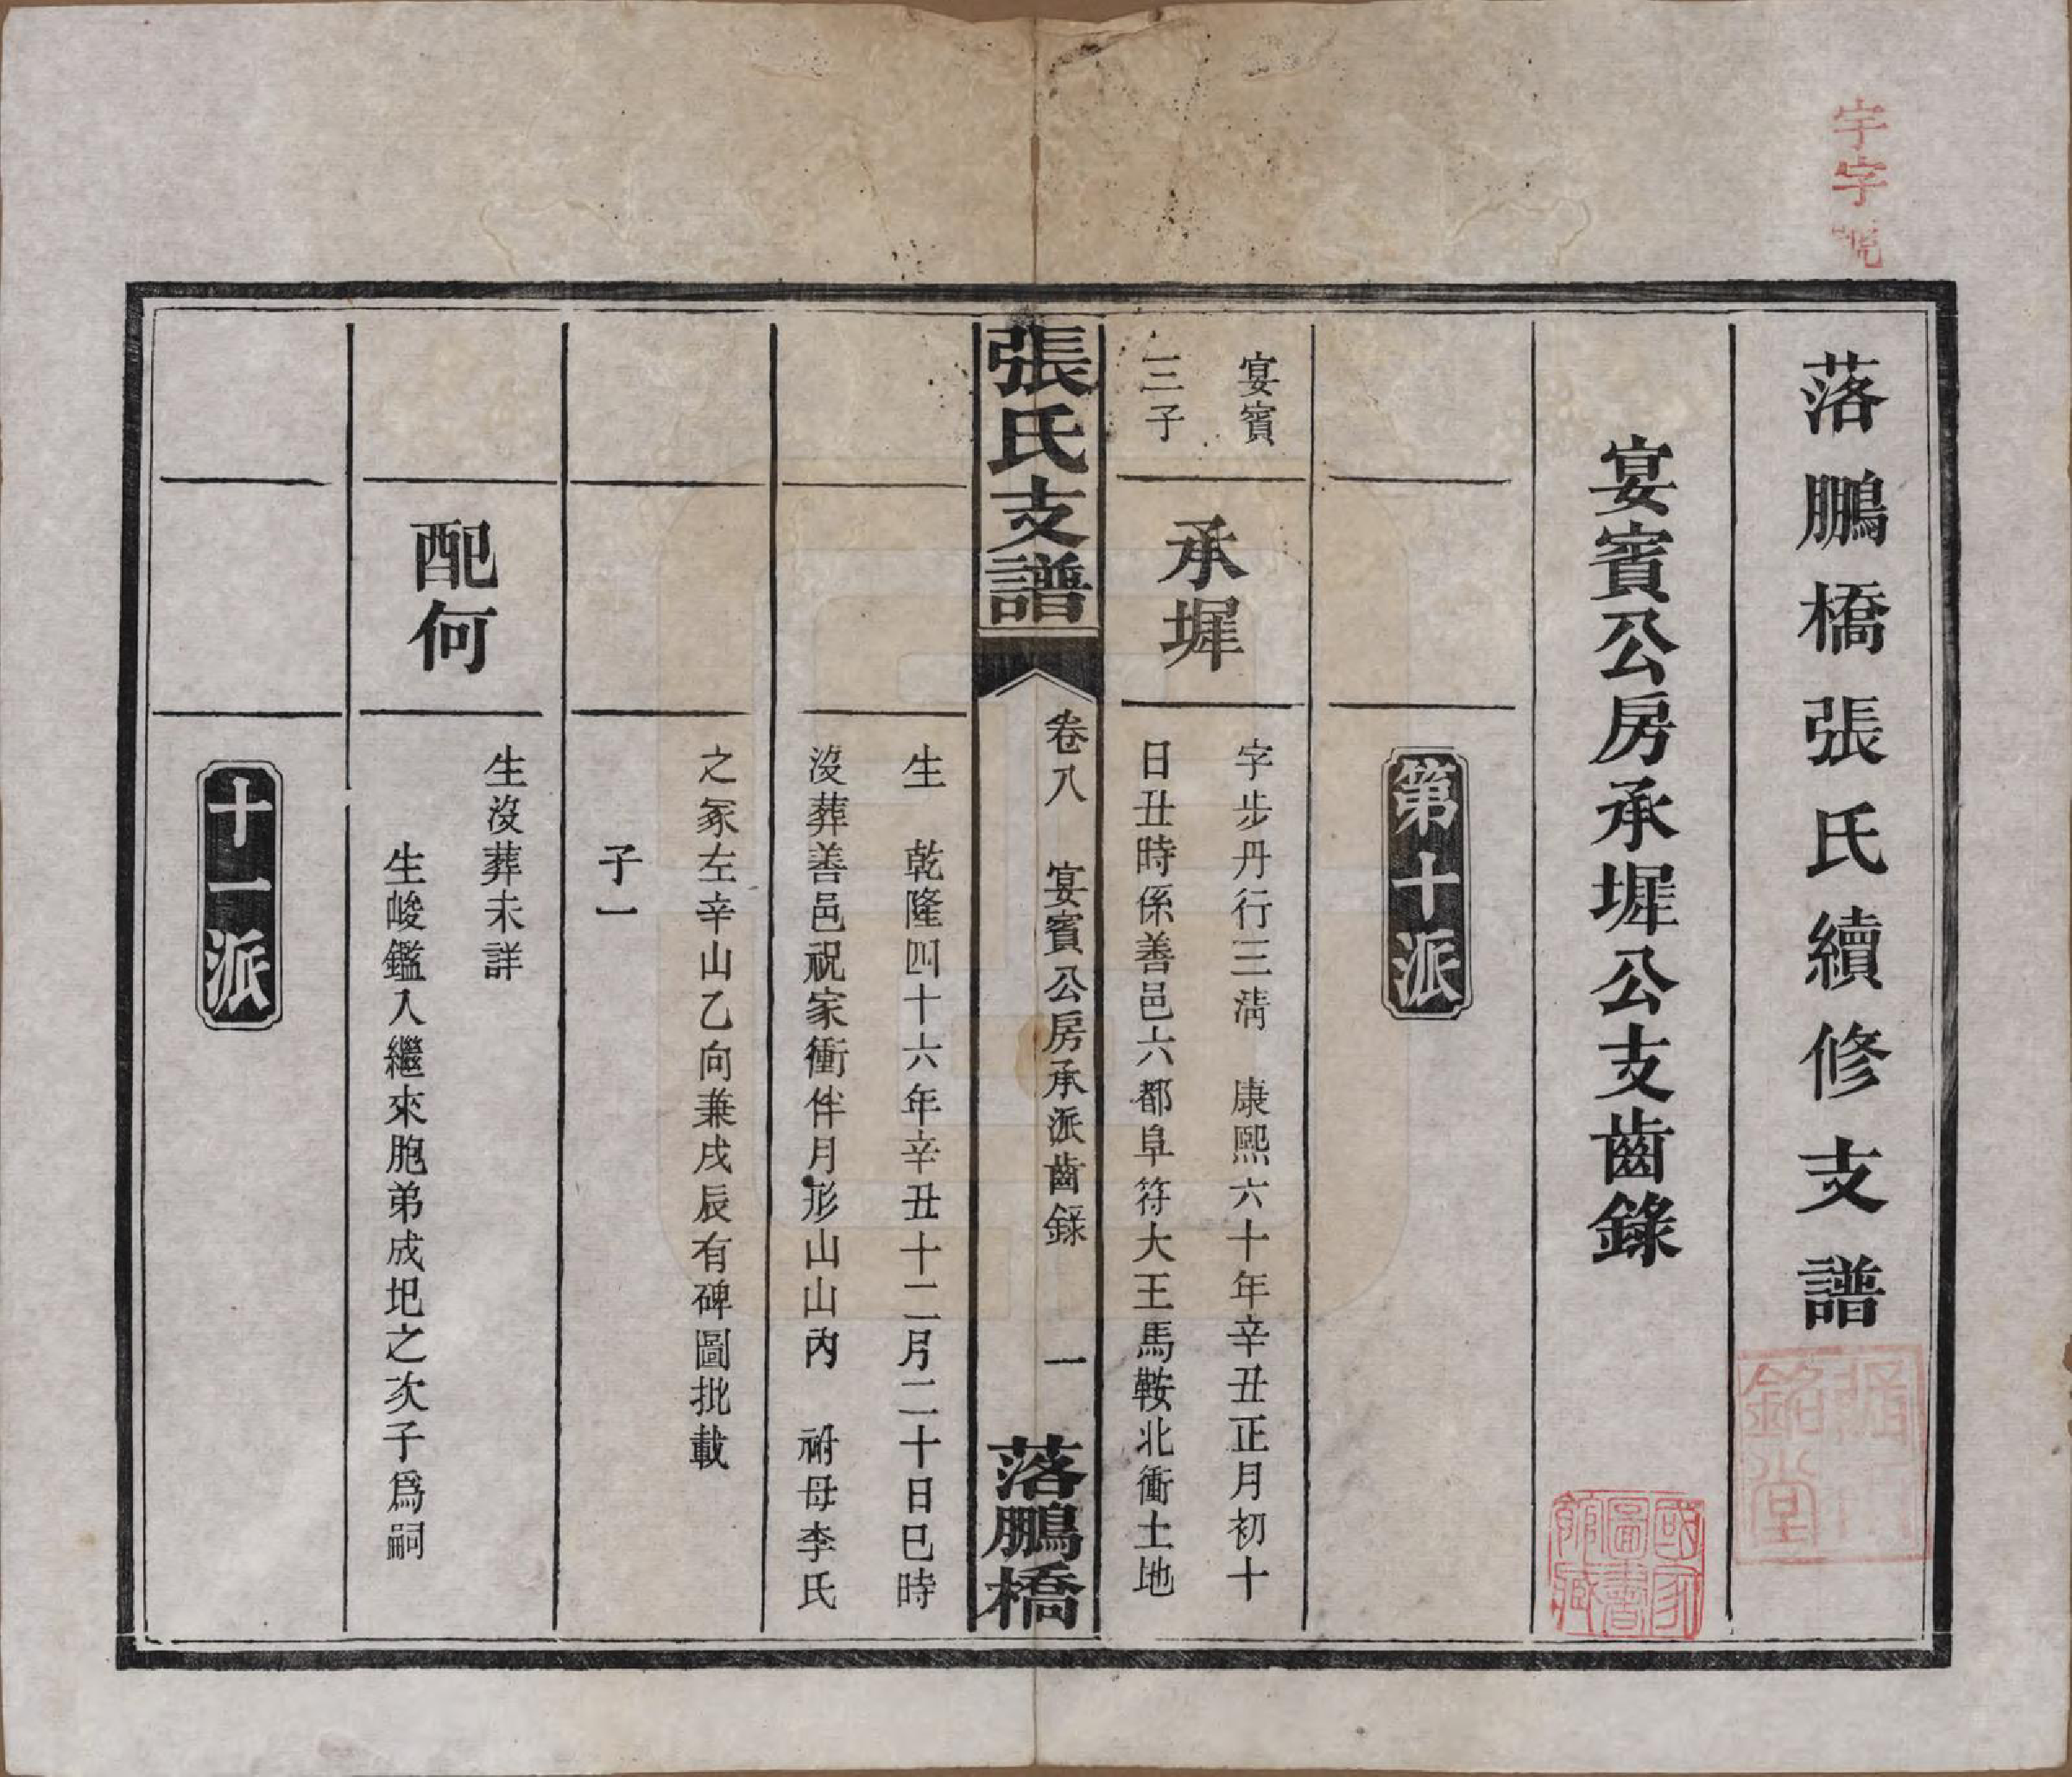 宇字號
落鵬橋張氏續修支譜
宴賓公房承墀公支齒錄
第十派
宴賓
三子
承墀
字步丹行三淸 康熙六十年辛丑正月初十
日丑時係善邑六都阜符大王馬鞍北衝土地
張氏支譜
卷八 宴賓公房承派齒錄 一
落鵬橋
生 乾隆四十六年辛丑十二月二十日巳時
沒葬善邑祝家衝伴月形山山內 祔母李氏
之冢左辛山乙向兼戌辰有碑圖批載
子一
配何
生沒葬未詳
生峻鑑入繼來胞弟成圯之次子爲嗣
十一派
銘堂
國家圖書館藏